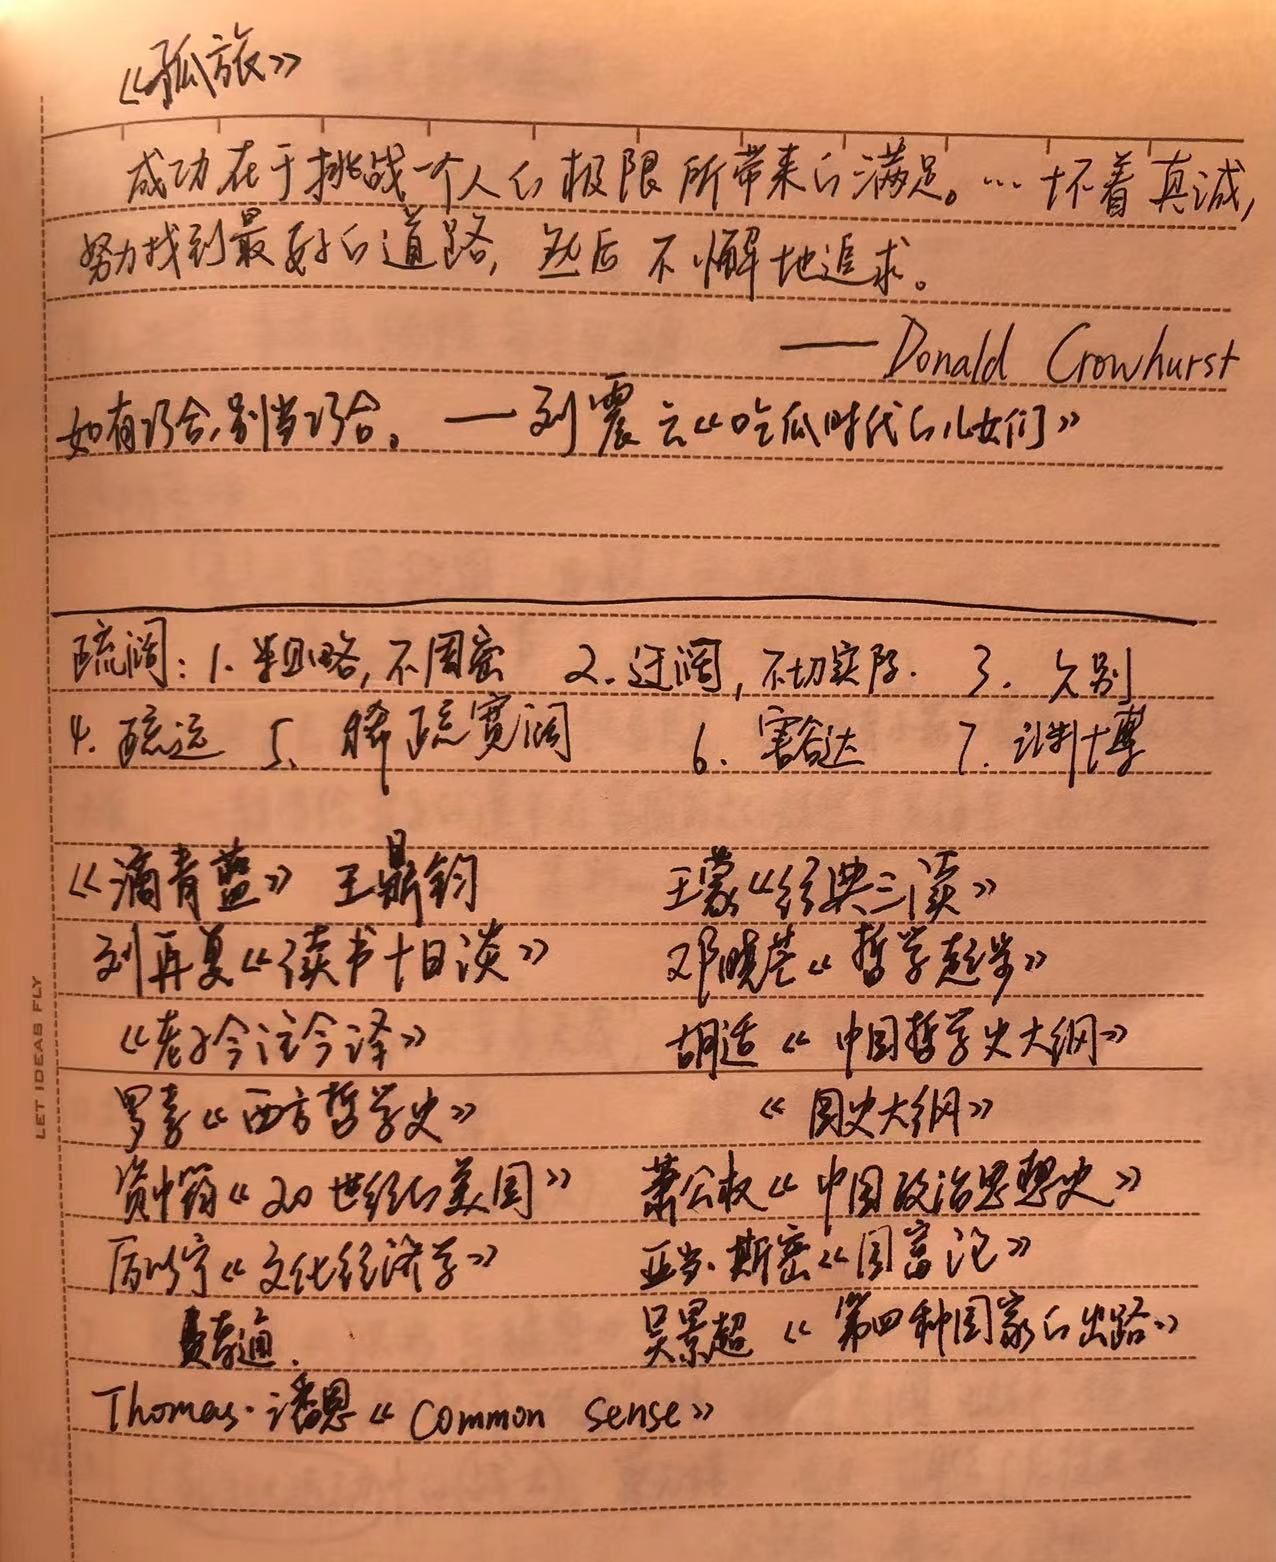 《孤旅》
成功在于挑战一个人的极限所带来的满足。… 怀着真诚,
努力找到最好的道路, 然后不懈地追求。
—— Donald Crowhurst
如有巧合,别当巧合。—刘震云《吃瓜时代的儿女们》
疏阔: 1. 粗略,不周密 2. 迂阔,不切实际. 3. 久别
4. 疏远 5. 稀疏宽阔 6. 豁达 7.
《滴青蓝》 王鼎钧 王蒙《经典三读》
刘再复《读书十日谈》 邓晓芒《哲学起步》
《老子今注今译》 胡适《中国哲学史大纲》
罗素《西方哲学史》 《国史大纲》
资中筠《20世纪的美国》 萧公权《中国政治思想史》
厉以宁《文化经济学》 亚当·斯密《国富论》
费孝通. 吴景超《第四种国家的出路》
Thomas·潘恩《Common sense》
LET IDEAS FLY